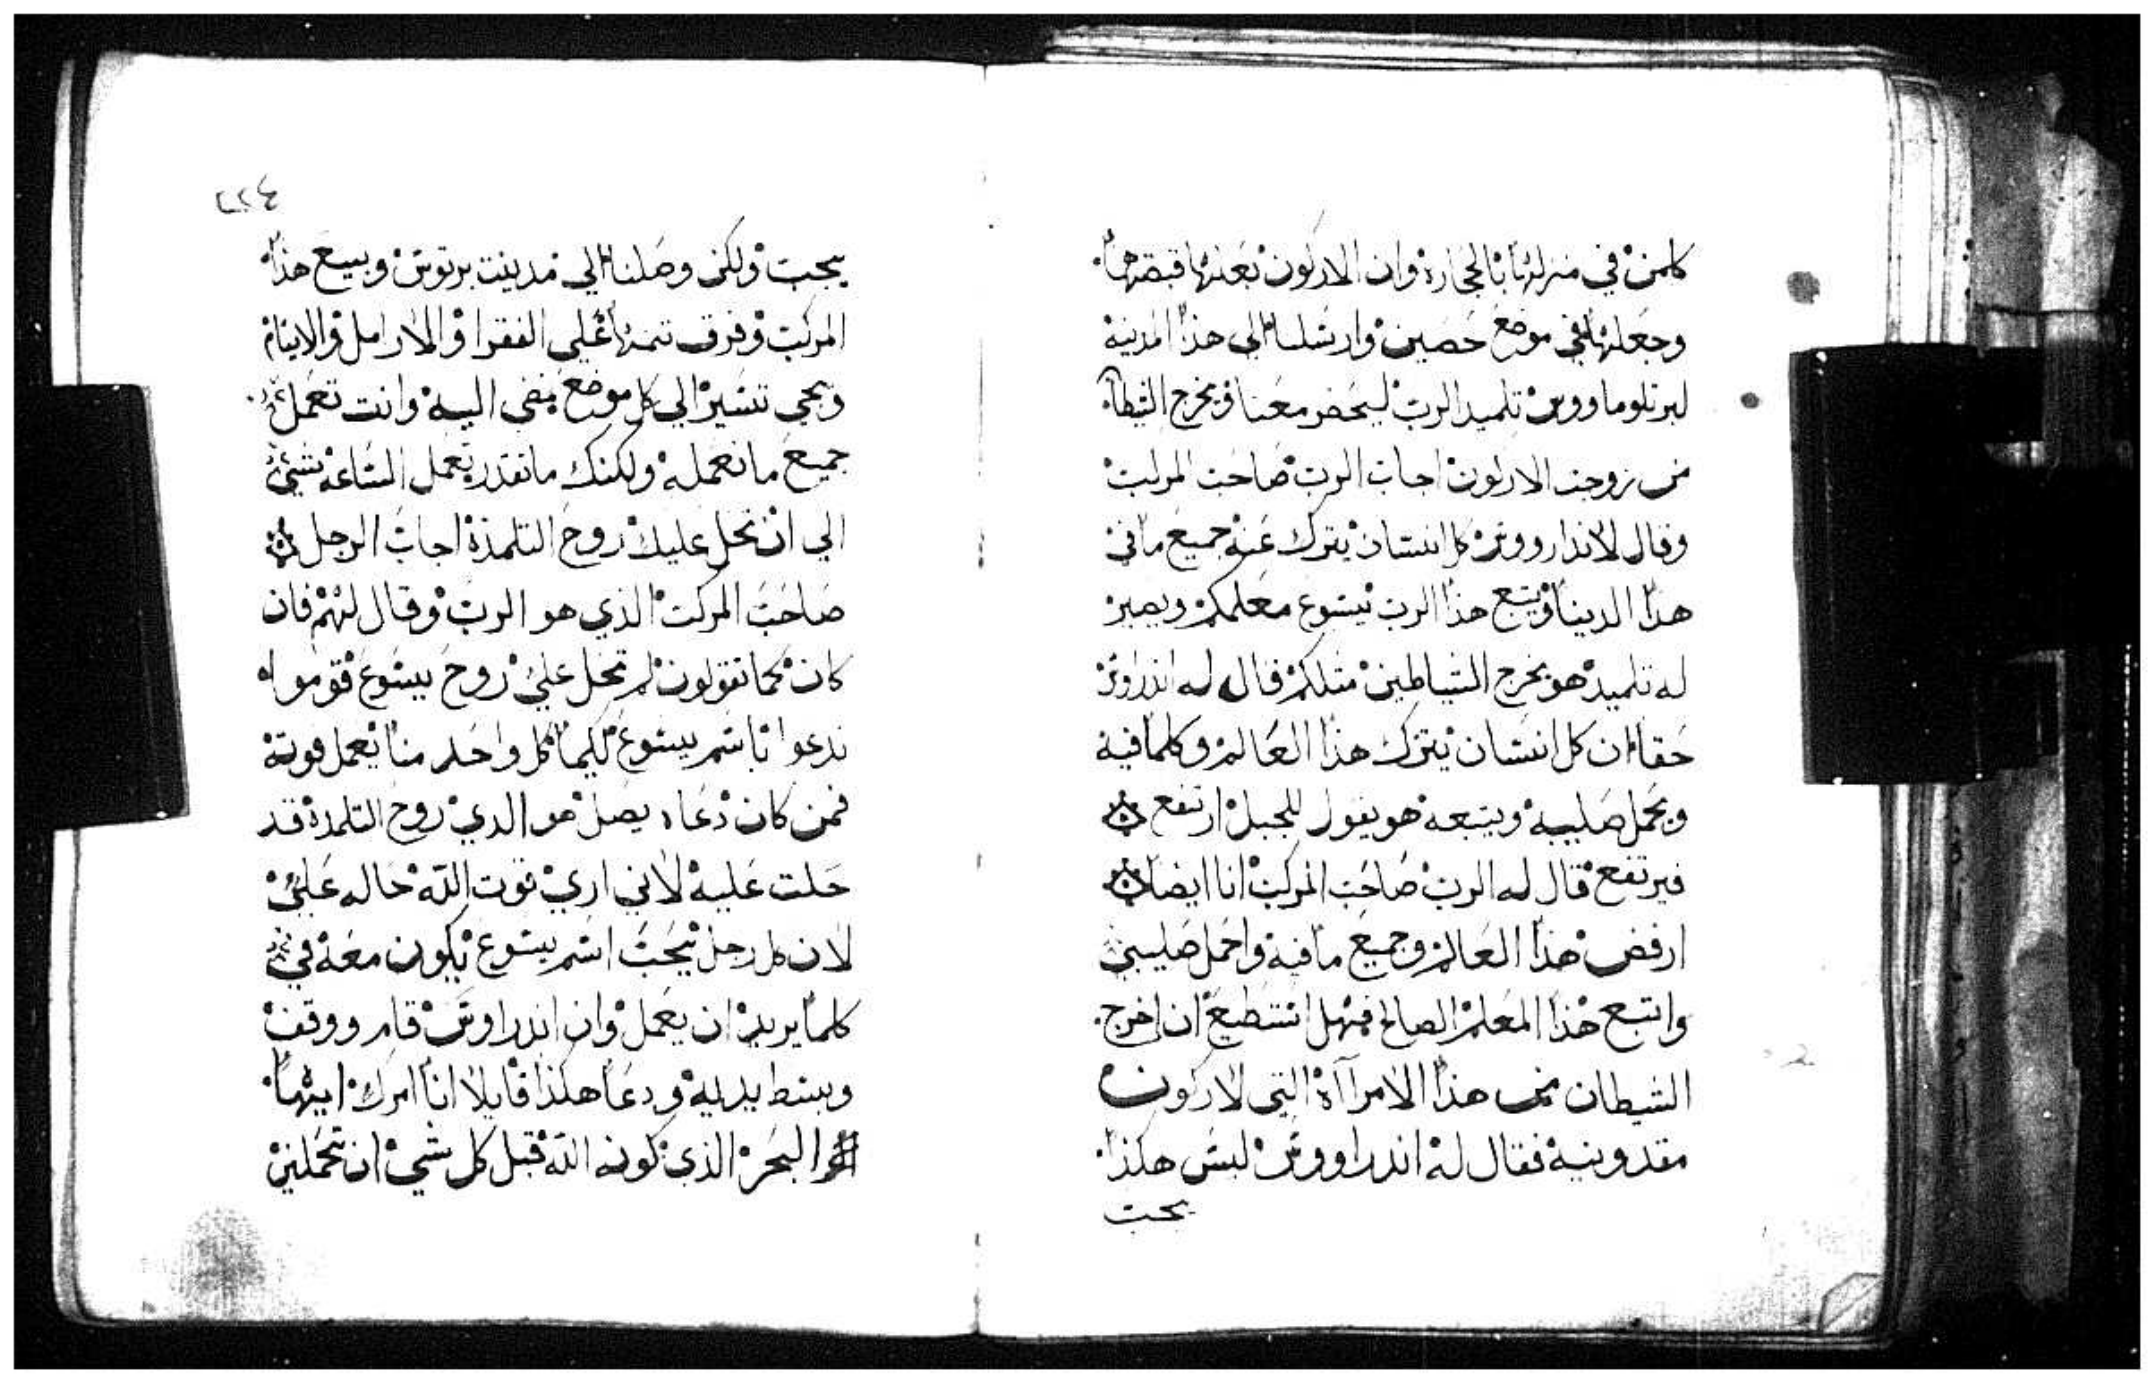 كلمن في منزلها بالحجاره وان الاركون بعلها قبضها
وجعلها في موضع حصين وارسلنا الي هذا المدينه
لبرتلوماووس تلميد الرب ليحضر معنا ويخرج الشيطان
من زوجت الاركون اجاب الرب صاحب المركب
وقال لاندارووس كل انسان يترك عنه جميع ما في
هذا الدينا ويتبع هذا الرب يسوع معلمكم ويصير
له تلميد هو يخرج الشياطين متلكم قال له اندراوس
حقا ان كل انسان يترك هذا العالم وكلما فيه
ويحمل صليبه ويتبعه هو يقول للجبل ارتفع
فيرتفع قال له الرب صاحب المركب انا ايضا
ارفض هذا العالم وجميع ما فيه واحمل صليبي
واتبع هذا المعلم الصالح فهل استطيع ان اخرج
الشيطان من هذا الامراآة التي لاركون
مقدونيه فقال له اندراووس ليس هكذا
يجب
٢٢٤
يجب ولكن وصلنا الي مدينت برتوس وبيع هذا
المركب وفرق تمنها علي الفقرا والارامل والايتام
وتجي تسير الي كل موضع نمضي اليه وانت تعمل
جميع ما نعمله ولكنك ما تقدر تعمل الساعه شي
الي ان تحل عليك روح التلمذة اجاب الرجل
صاحب المركب الذي هو الرب وقال لهم فان
كان كما تقولون لم تحل علي روح يسوع قوموا
ندعوا باسم يسوع لكيما كل واحد منا يعمل قوته
فمن كان دعاه يصل هو الدي روح التلمذة قد
حلت عليه لاني اري قوت الله حاله علي
لان كل رجل يحب اسم يسوع يكون معه في
كلما يريد ان يعمل وان اندراوس قام ووقف
وبسط يديه ودعا هكذا قايلا انا امرك ايتها
البحر الذي كونه الله قبل كل شي ان تحملين